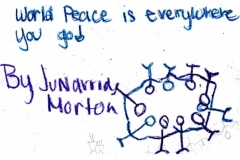 World Peace is everywhere
you go!
By JuNarride
Morton